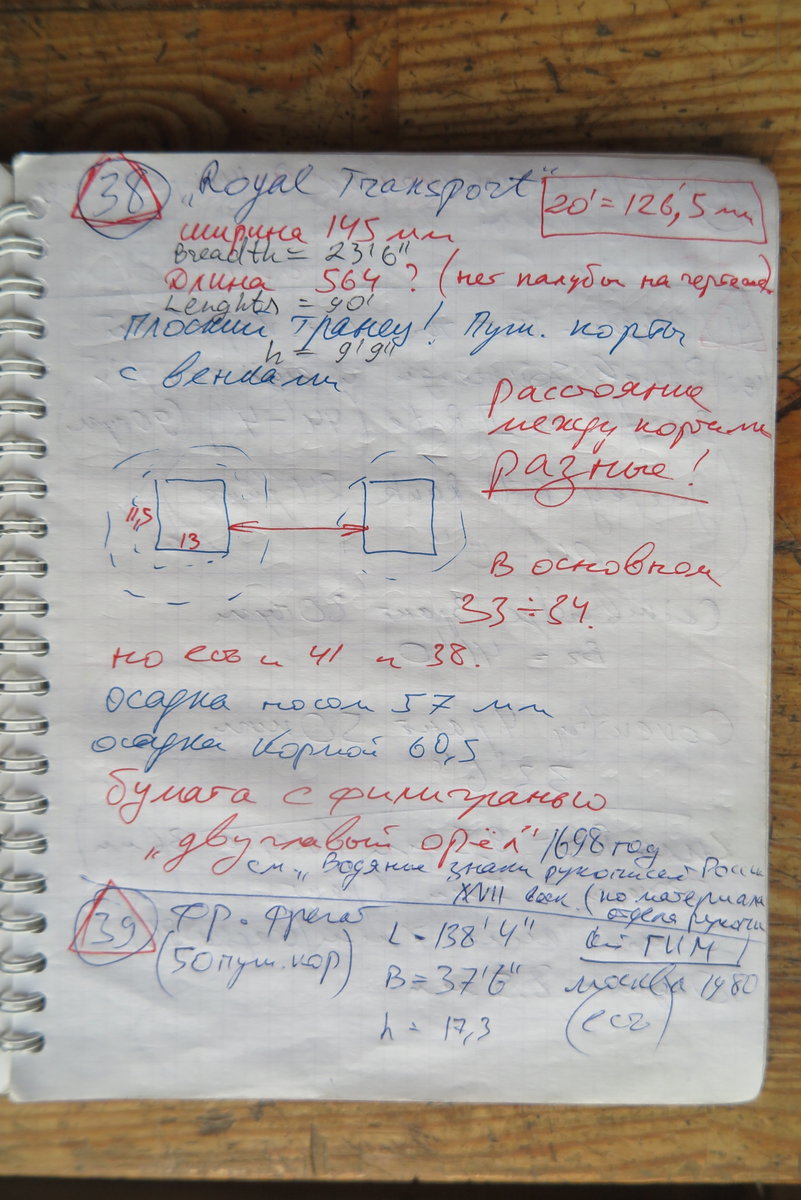 38 "Royal Transport"
20' = 126,5 мм
ширина 145 мм
Breadth = 23'6"
Длина 564 ? (нет палубы на чертеже)
Lenghts = 90'
Плоский транец! Пуш. порты
h = 9'9"
с венками
расстояние
между портами
разные!
11,5
13
В основном
33÷34.
но есть и 41 и 38.
осадка носом 57 мм
осадка кормой 60,5
бумага с филигранью
"двуглавый орёл" 1698 год
см. "Водяные знаки рукописей России
XVII века (по материалам
отдела рукописей
39 Фр. фрегат
L = 138' 4"
ГИМ
(50 пуш. кор)
B = 37'6"
Москва 1980
h = 17,3
(есть)